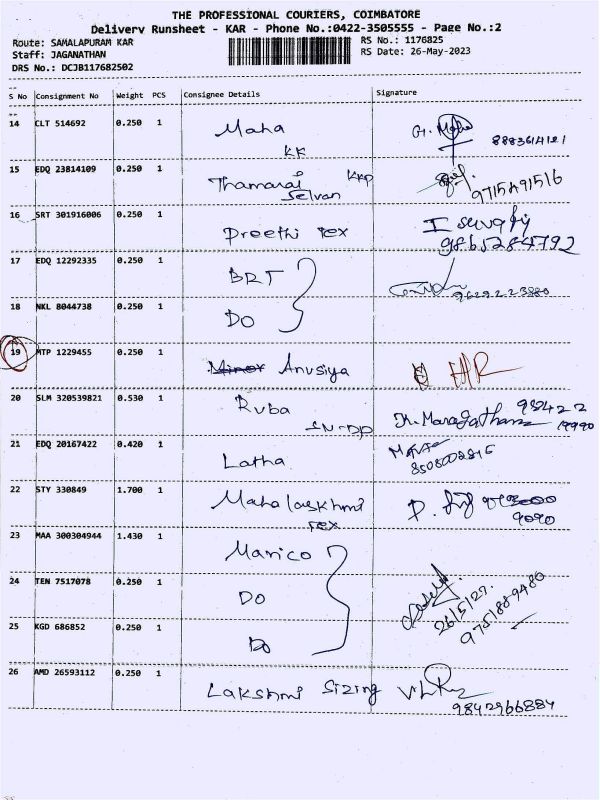 THE PROFESSIONAL COURIERS, COIMBATORE
Delivery Runsheet - KAR - Phone No.:0422-3505555 - Page No.:2
Route: SAMALAPURAM KAR RS No.: 1176825
Staff: JAGANATHAN RS Date: 26-May-2023
DRS No.: DCJB117682502
S No Consignment No Weight PCS Consignee Details Signature
14 CLT 514692 0.250 1 Maha
KK 8883614121
15 EDQ 23814109 0.250 1 Thamarai KKP
Selvan 9715491516
16 SRT 301916006 0.250 1 Preethi Tex
9865284792
17 EDQ 12292335 0.250 1 BRT
18 NKL 8044738 0.250 1 DO
19 MTP 1229455 0.250 1 Anusiya
20 SLM 320539821 0.530 1 Ruba
21 EDQ 20167422 0.420 1 Latha
22 STY 330849 1.700 1 Mahalaskhmi
Tex 9090
23 MAA 300304944 1.430 1 Marico
24 TEN 7517078 0.250 1 DO
25 KGD 686852 0.250 1 DO
9751889480
26 AMD 26593112 0.250 1 Lakshmi Sizing
9842966884